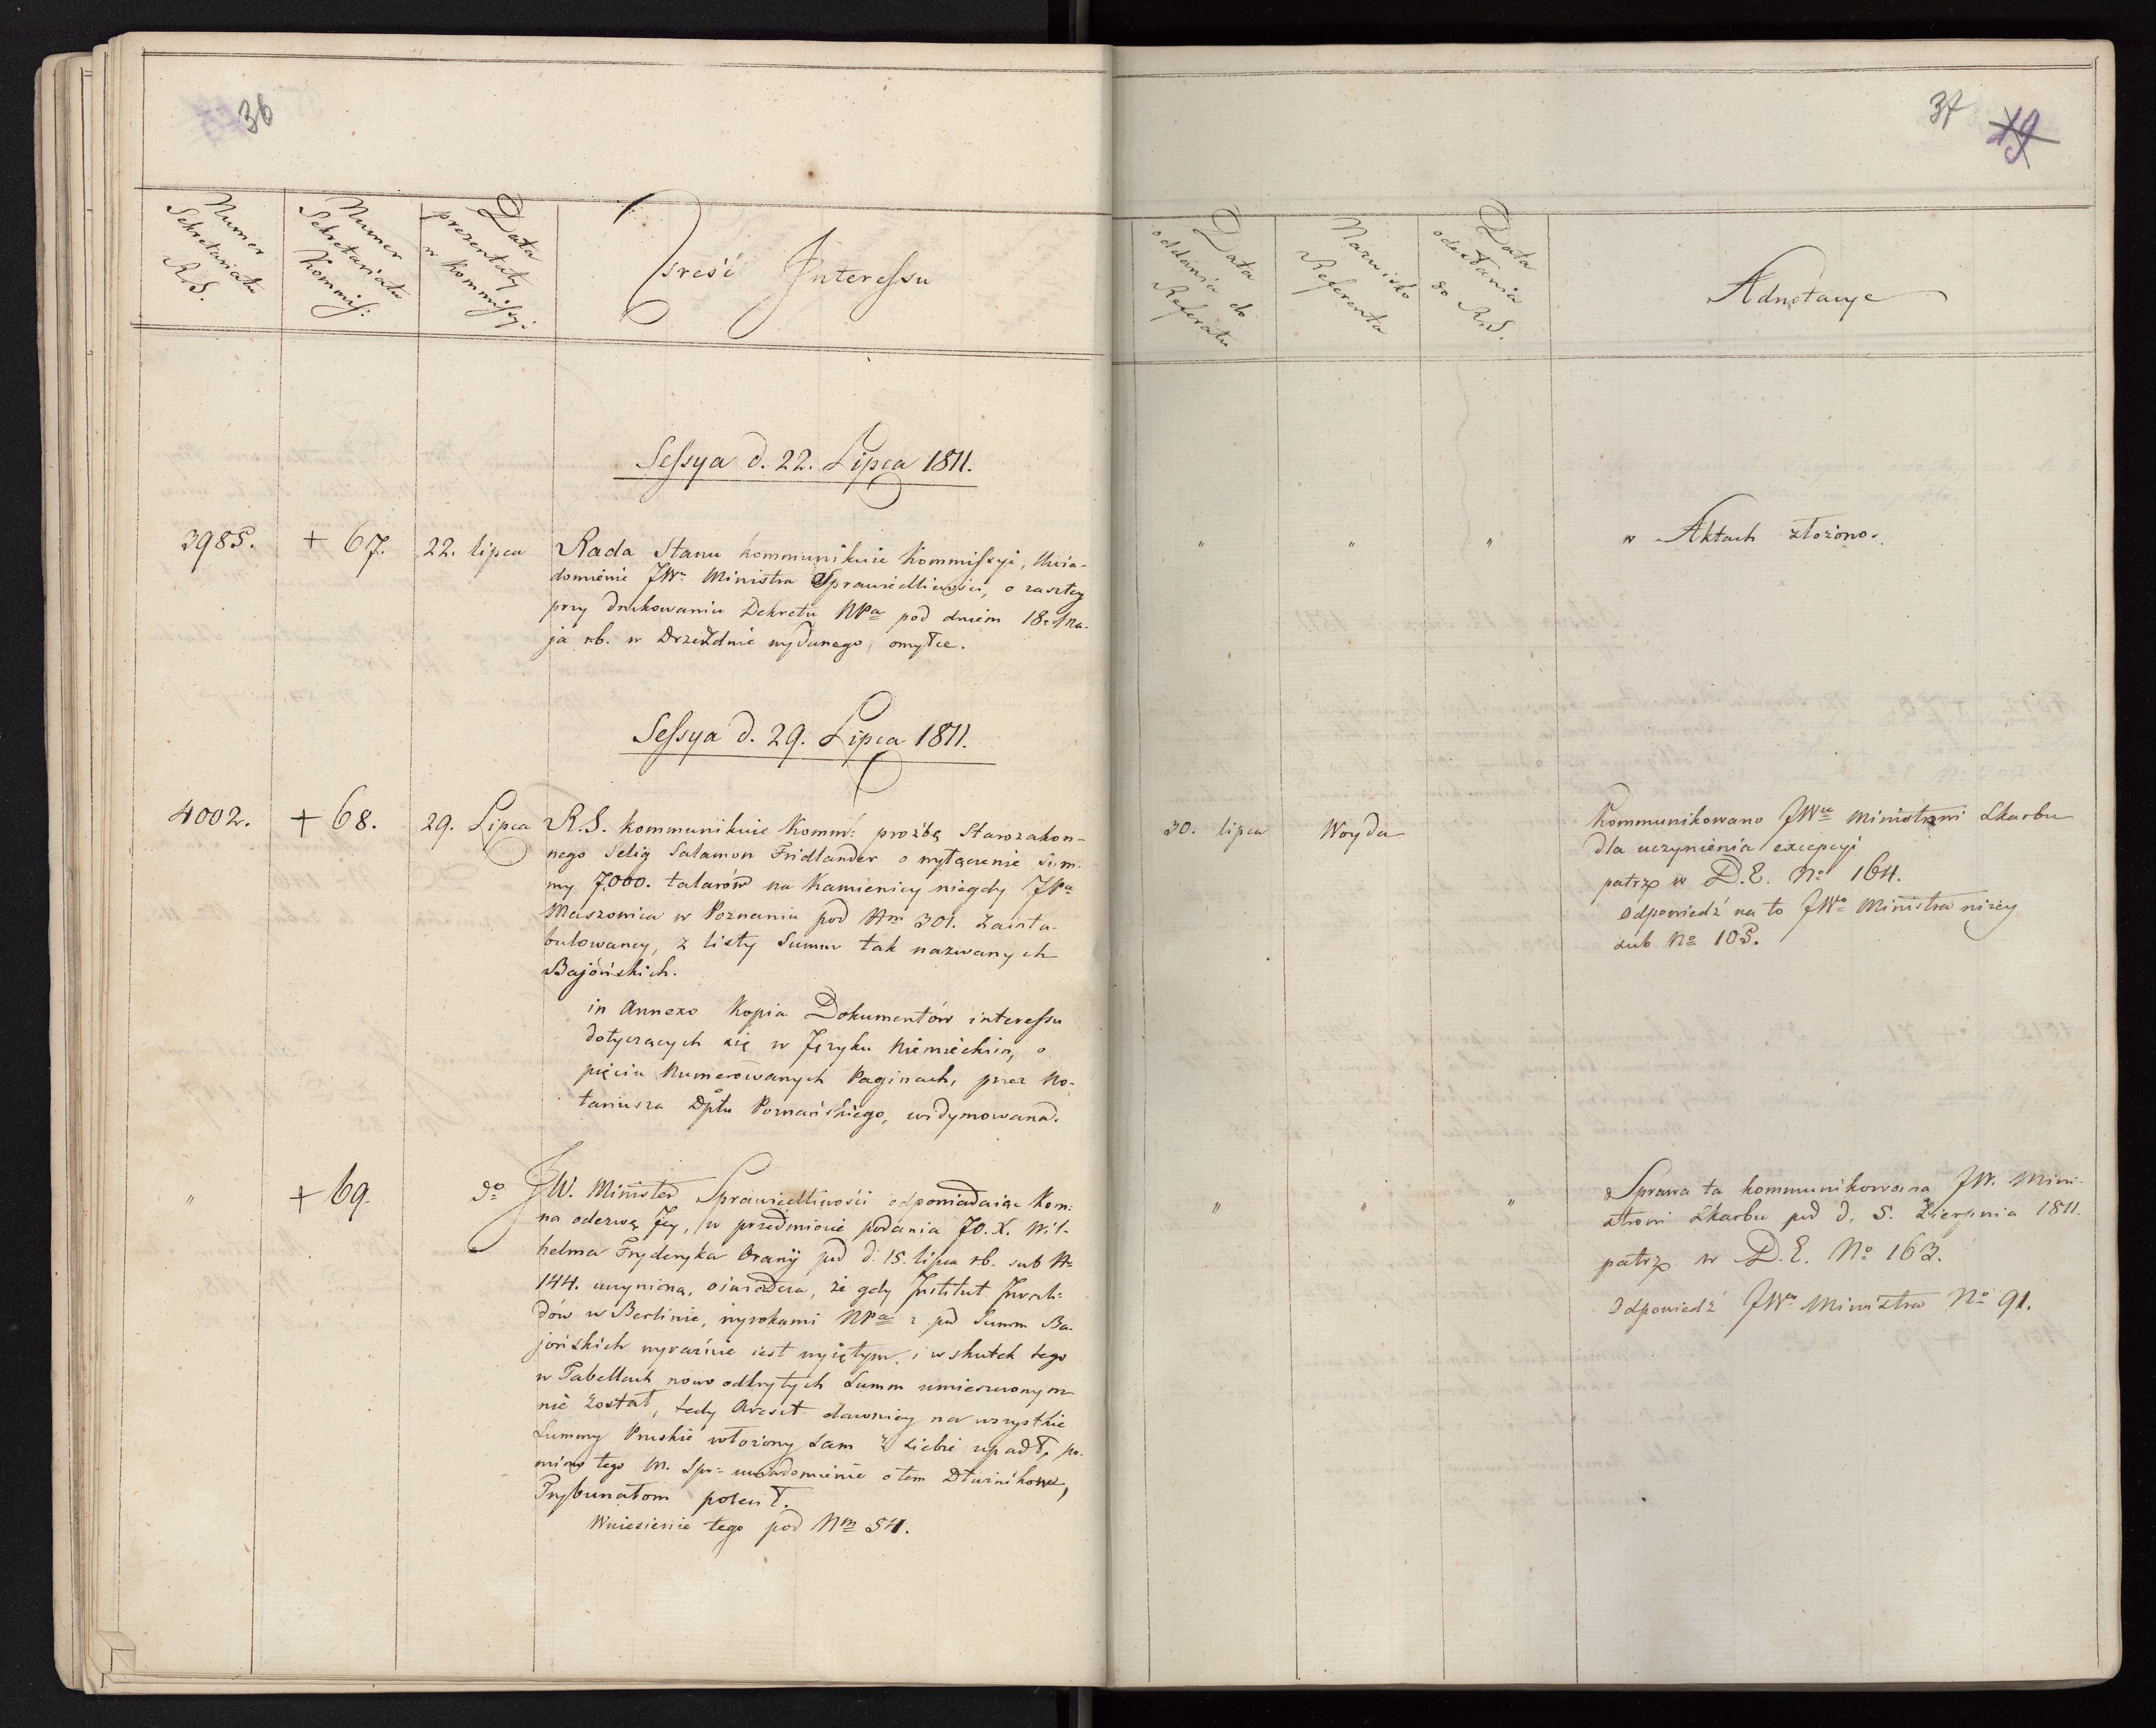 36
Numer
Sekretariatu
R.S.
Numer
Sekretariatu
Kommiss:
Data
prezentaty
w Kommissyi
Treść Interessu
Sessya d. 22. Lipca 1811.
3985. + 67. 22. lipca Rada Stanu kommunikuie Kommissyi, Uwia-
domienie JWo Ministra Sprawiedliwości, o zaszłey
przy drukowaniu Dekretu NPa pod dniem 18. Ma-
ja rb. w Drzeźdnie wydanego, omyłce.
Sessya d. 29. Lipca 1811.
4002. + 68. 29. Lipca R.S. kommunikuie Komm: prożbę Starozakon-
nego Selig Salamon Fridlander o wyłączenie Sum-
my 7,000. talarów na Kamienicy niegdy JPa
Maszowica w Poznaniu pod Nm 301. zainta-
bulowaney, z listy Summ tak nazwanych
Bajońskich.
in Annexo Kopia Dokumentów interessu
dotyczących się w Języku Niemieckim, o
pięciu Numerowanych Paginach, przez No-
tariusza Dptu Poznańskiego, widymowana.
" + 69. do JW. Minister Sprawiedliwości odpowiadaiąc Kom:
na odezwę Jey, w przedmiocie podania JO. X. Wil-
helma Fryderyka Oranÿ pod d. 15. lipca rb. sub No
144. uczynioną, oświadcza, że gdy Institut Inwali-
dów w Berlinie, wyrokami NPa z pod Summ Ba-
jońskich wyraźnie iest wyiętym, i w skutek tego
w Tabellach nowo odkrytych Summ umieszczonym
nie został, tedy Areszt dawniey na wszystkie
Summy Pruskie włożony sam z siebie upadł, po-
mimo tego M. Spr: uwiadomienie o tem Dłużnikom,
Trybunałom polecił.
Wniesienie tego pod Nm 54.
37 19
Data
oddania do
Referatu
Nazwisko
Referenta
Data
odesłania
do R.S.
Adnotacye
" " " w Aktach złożono.
30. lipca Woyda Kommunikowano JWu Ministrowi Skarbu
dla uczynienia excepcyi
patrz w D.E. No 164.
Odpowiedź na to JWo Ministra niżey
sub No 105.
" " " Sprawa ta kommunikowana JW. Mini-
strowi Skarbu pod d. 5. Sierpnia 1811.
patrz w D.E. No 163.
Odpowiedź JWo Ministra No 91.